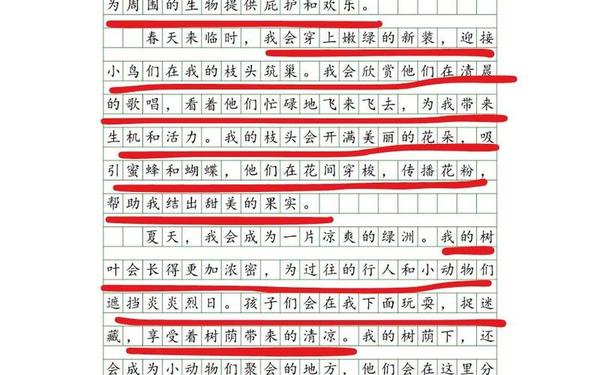 为周围的生物提供庇护和欢乐。
春天来临时，我会穿上嫩绿的新装，迎接
小鸟们在我的枝头筑巢。我会欣赏他们在清晨
的歌唱，看着他们忙碌地飞来飞去，为我带来
生机和活力。我的枝头会开满美丽的花朵，吸
引蜜蜂和蝴蝶，他们在花间穿梭，传播花粉，
帮助我结出甜美的果实。
夏天，我会成为一片凉爽的绿洲。我的树
叶会长得更加浓密，为过往的行人和小动物们
遮挡炎炎烈日。孩子们会在我下面玩耍，捉迷
藏，享受着树荫带来的清凉。我的树荫下，还
会成为小动物们聚会的地方，他们会在这里分